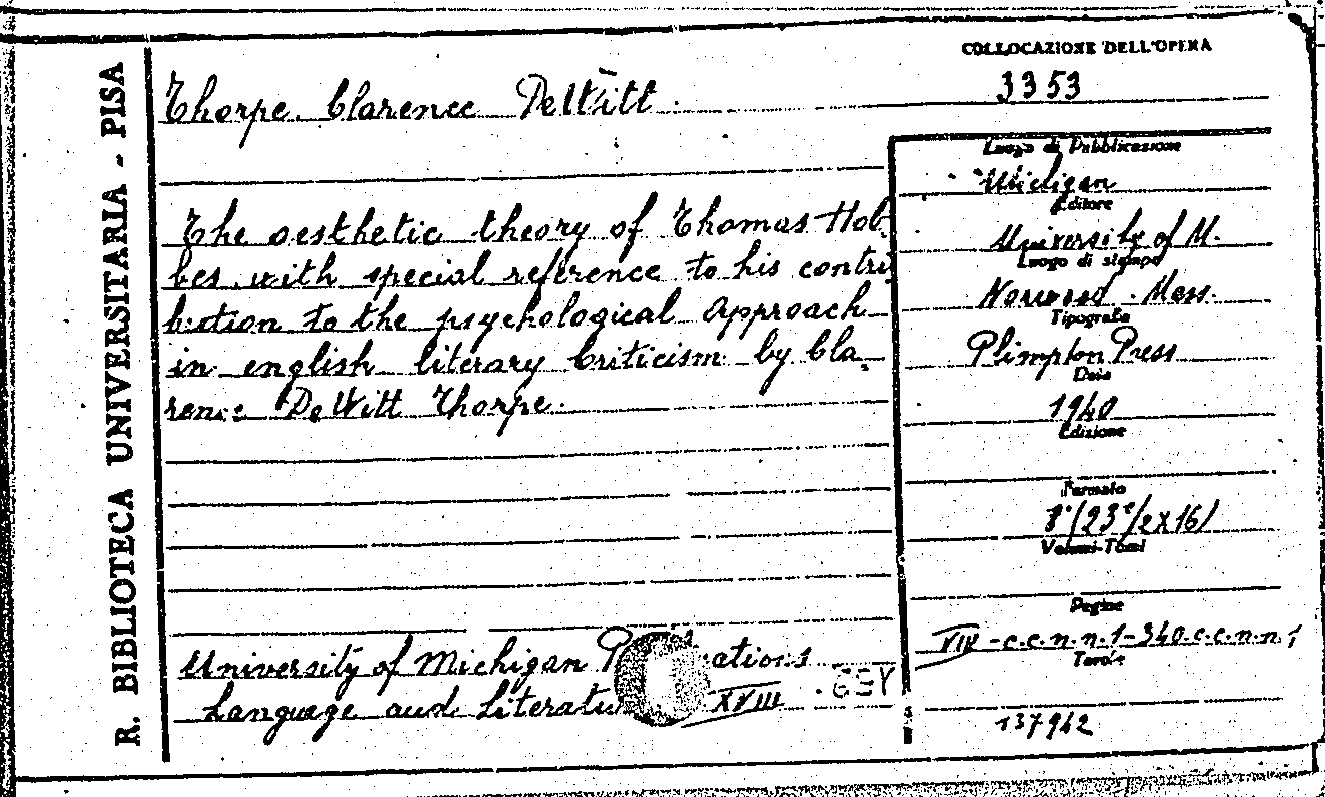 R. BIBLIOTECA UNIVERSITARIA - PISA
COLLOCAZIONE DELL'OPERA
3353
Thorpe. Clarence DeWitt.
The aesthetic theory of Thomas Hob-
bes with special reference to his contri
bution to the psychological approach
in english literary criticism by Cla_
rence DeWitt Thorpe.
University of Michigan P ations
Language and Literatu XVIII.
Luogo di Pubblicazione
Michigan
Editore
University of M.
Luogo di stampa
Norwood. Mass.
Tipografia
Plimpton Press
Data
1940
Edizione
Formato
8°(23 1/2x16)
Volumi-Tomi
Pagine
VIII-c.c.n.n.1-340.c.c.n.n.1
Tavole
137942